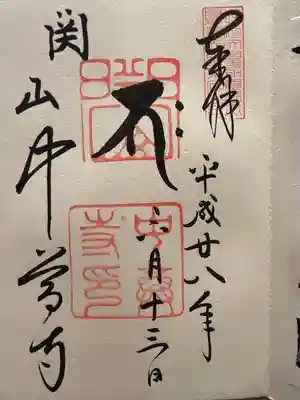 奉拝
平成廿八年
六月十三日
関山中尊寺